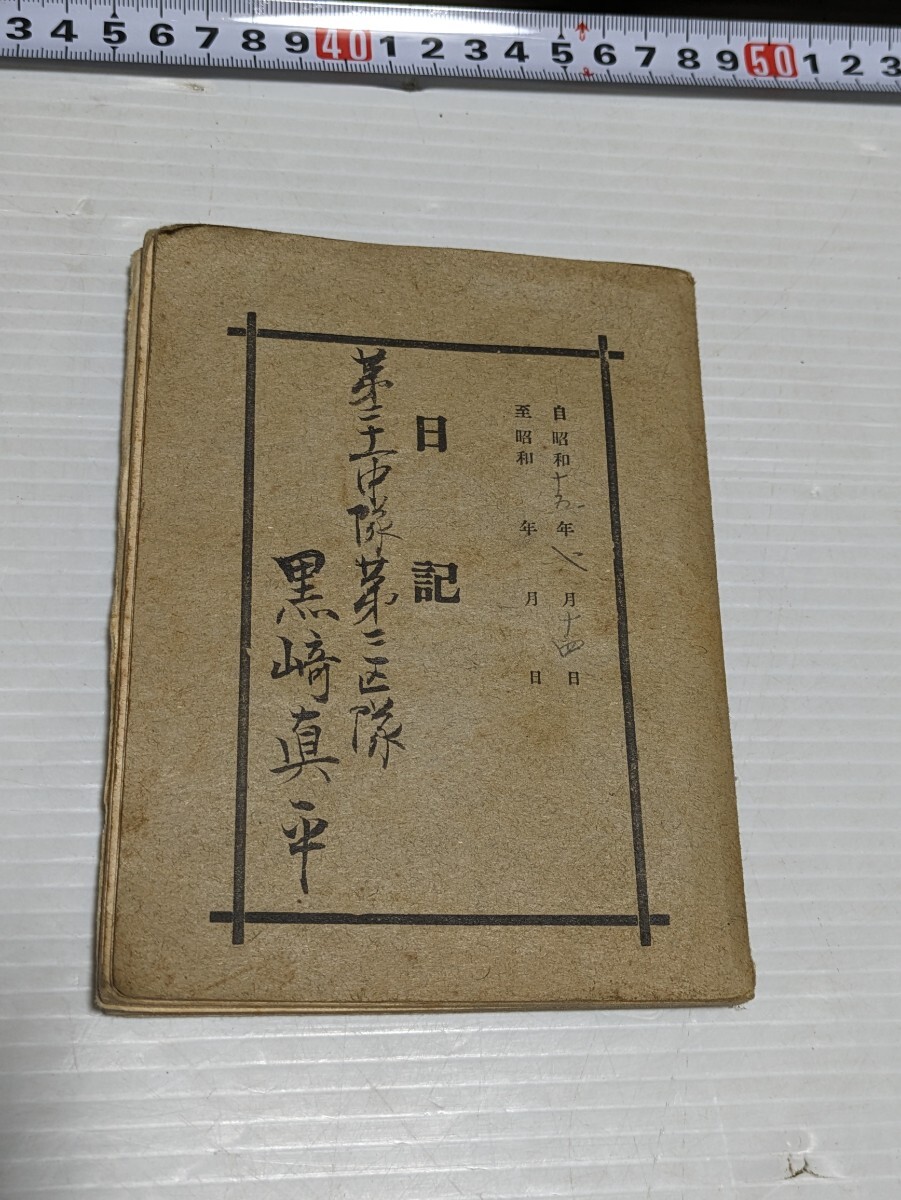 3 4 5 6 7 8 9 40 1 2 3 4 5 6 7 8 9 50 1 2 3
自昭和十九年八月十四日
至昭和 年 月 日
日記
第二十一中隊第二区隊
黒﨑真平